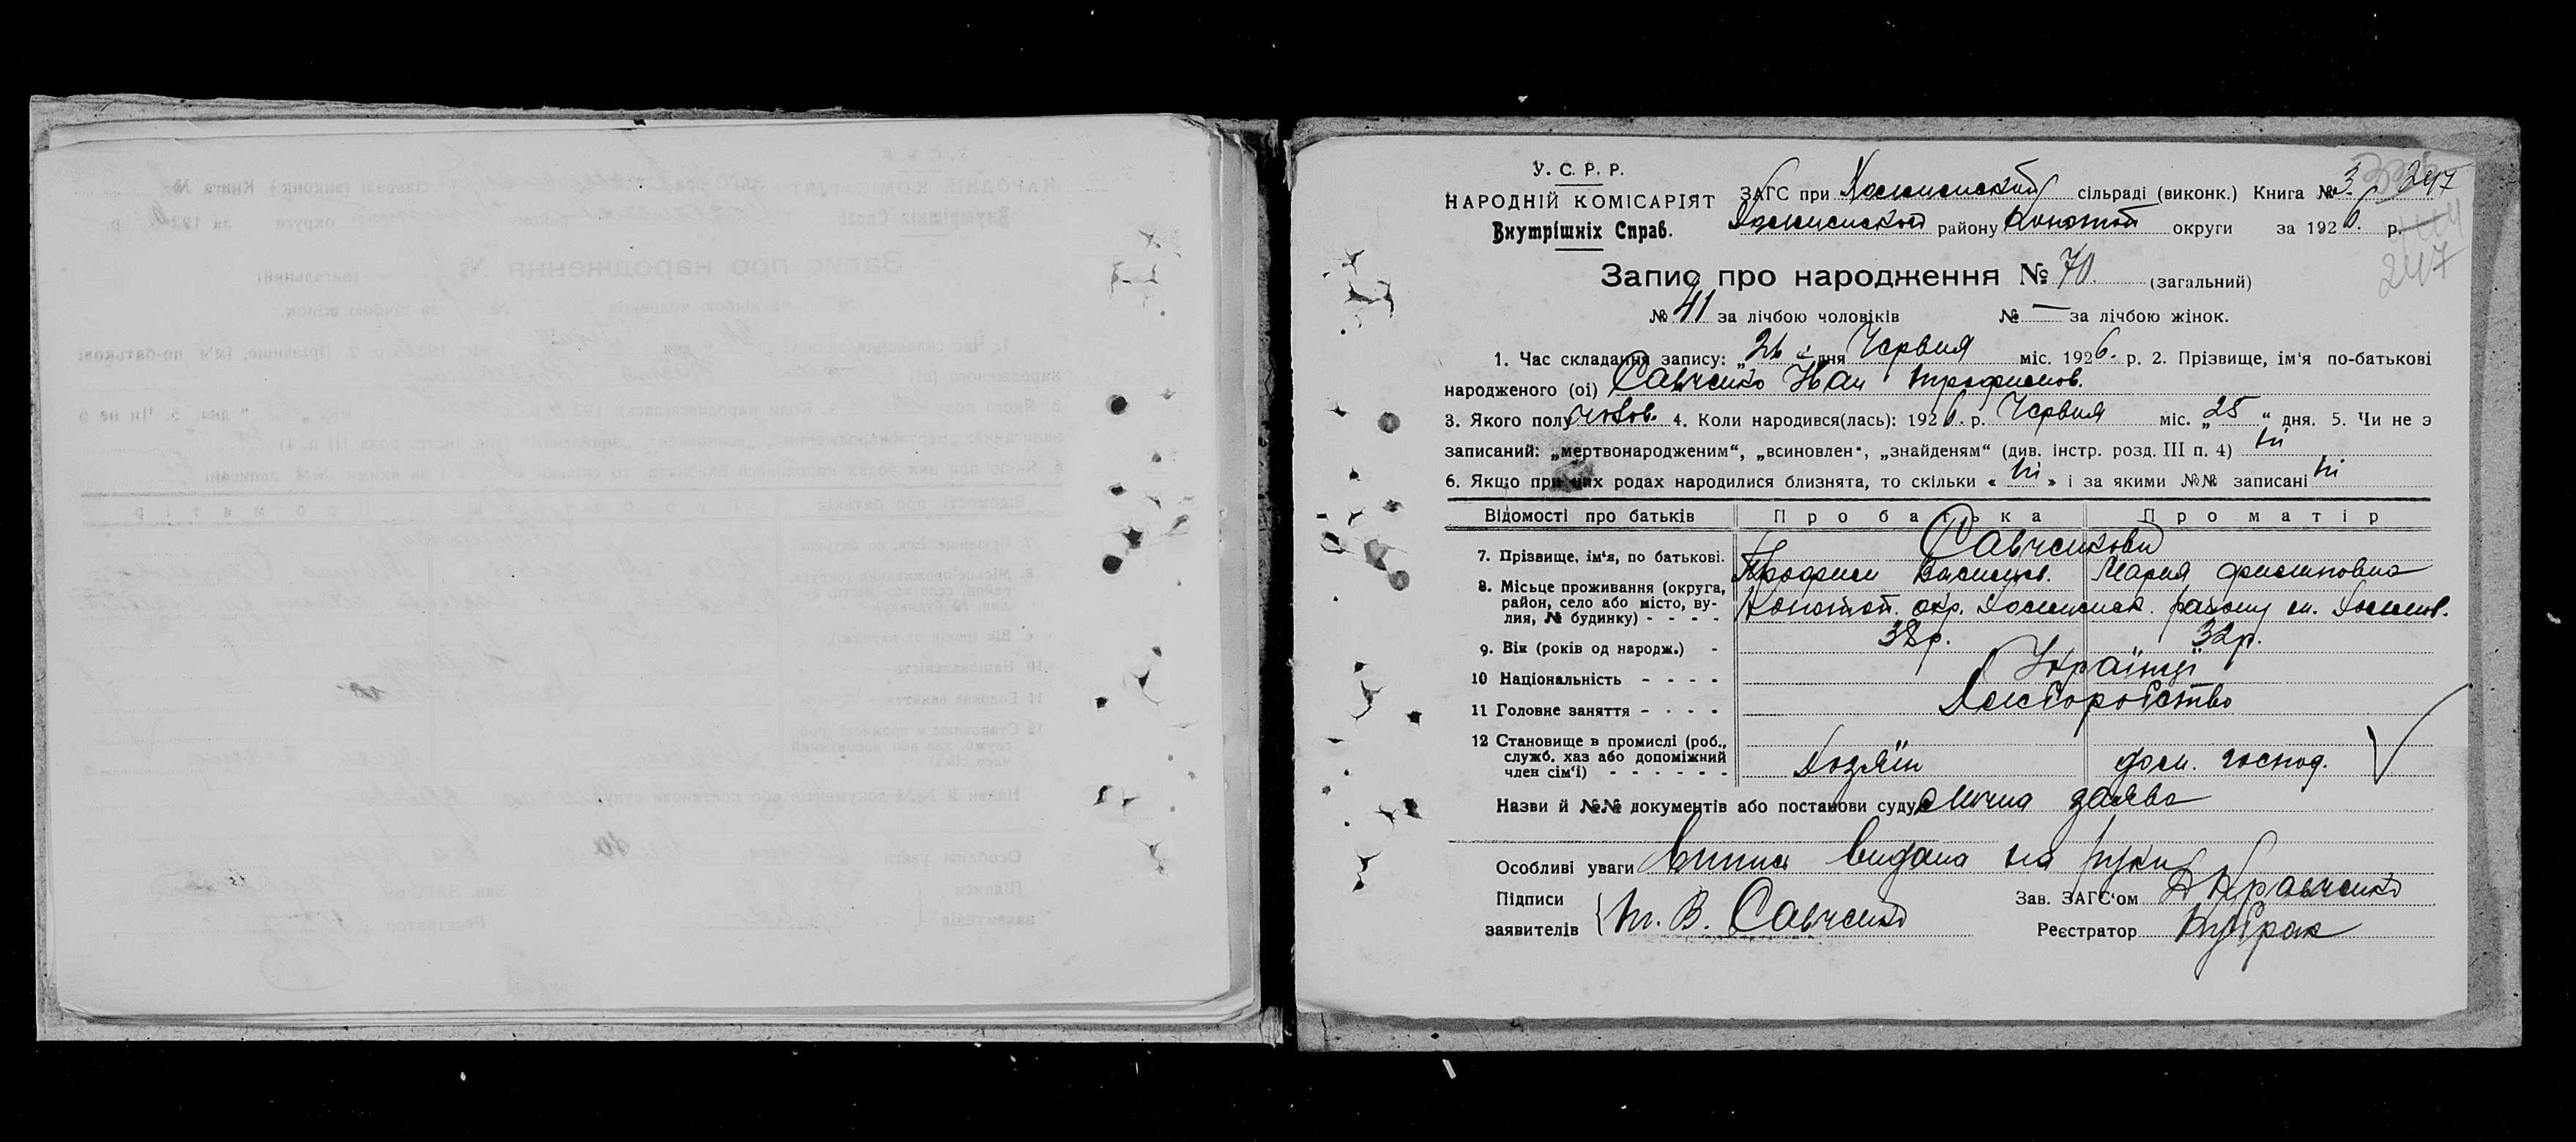 У. С. Р. Р.
НАРОДНІЙ КОМІСАРІЯТ
Внутрішніх Справ.
ЗАГС при сільраді (виконк.) Книга № 3. 247
району Конотоп округи за 1926. р.
247
Запис про народження № 70. (загальний)
№ 41 за лічбою чоловіків № — за лічбою жінок.
1. Час складання запису: „26" дня Червня міс. 1926. р. 2. Прізвище, ім'я по-батькові
народженого (ої) Савченко Іван Трофимов.
3. Якого полу чолов. 4. Коли народився(лась): 1926. р. Червня міс. „25" дня. 5. Чи не э
записаний: „мертвонародженим", „всиновлен", „знайденям" (див. інстр. розд. III п. 4) Ні
6. Якщо при цих родах народилися близнята, то скільки « Ні » і за якими №№ записані Ні
Відомості про батьків Про батька Про матір
7. Прізвище, ім'я, по батькові. Савченкови
Трофим Васильов. Мария Филиповна
8. Місьце проживання (округа, район, село або місто, вулия, № будинку) - - - - Конотоп. окр. району
9. Вік (років од народж.) - 38р. 32р.
10 Національність - - - - Українці
11 Головне заняття - - - - Хліборобство
12 Становище в промислі (роб., служб. хаз або допоміжний член сім'ї) - - - - - - Хозяїн дом. господ.
Назви й №№ документів або постанови суду Слична заява
Особливі уваги Випись видана на руки
Підписи
заявителів Т. В. Савченко
Зав. ЗАГС'ом Кравченко
Реєстратор Кубрак